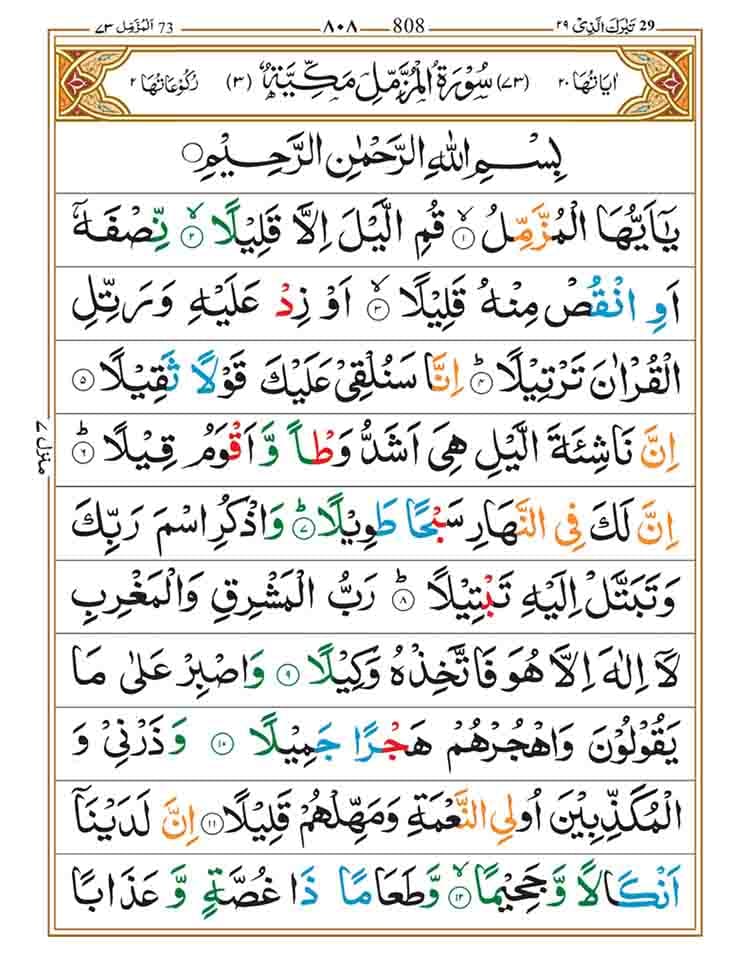 29 تَبٰرَكَ الَّذِیْ ٢٩ 808 ٨٠٨ 73 اَلْمُزَّمِّل ٧٣
اٰیَاتُهَا ٢٠ (٧٣) سُوْرَةُ الْمُزَّمِّلِ مَكِّیَّةٌ (٣) رُكُوْعَاتُهَا ٢
بِسْمِ اللّٰهِ الرَّحْمٰنِ الرَّحِیْمِ
یٰۤاَیُّهَا الْمُزَّمِّلُ ۙ﴿١﴾ قُمِ الَّیْلَ اِلَّا قَلِیْلًا ۙ﴿٢﴾ نِّصْفَهٗۤ
اَوِ انْقُصْ مِنْهُ قَلِیْلًا ۙ﴿٣﴾ اَوْ زِدْ عَلَیْهِ وَرَتِّلِ
الْقُرْاٰنَ تَرْتِیْلًا ؕ﴿٤﴾ اِنَّا سَنُلْقِیْ عَلَیْكَ قَوْلًا ثَقِیْلًا ﴿٥﴾
اِنَّ نَاشِئَةَ الَّیْلِ هِیَ اَشَدُّ وَطْاً وَّاَقْوَمُ قِیْلًا ؕ﴿٦﴾
اِنَّ لَكَ فِی النَّهَارِ سَبْحًا طَوِیْلًا ؕ﴿٧﴾ وَاذْكُرِ اسْمَ رَبِّكَ
وَتَبَتَّلْ اِلَیْهِ تَبْتِیْلًا ؕ﴿٨﴾ رَبُّ الْمَشْرِقِ وَالْمَغْرِبِ
لَاۤ اِلٰهَ اِلَّا هُوَ فَاتَّخِذْهُ وَكِیْلًا ﴿٩﴾ وَاصْبِرْ عَلٰی مَا
یَقُوْلُوْنَ وَاهْجُرْهُمْ هَجْرًا جَمِیْلًا ﴿١٠﴾ وَذَرْنِیْ وَ
الْمُكَذِّبِیْنَ اُولِی النَّعْمَةِ وَمَهِّلْهُمْ قَلِیْلًا ﴿١١﴾ اِنَّ لَدَیْنَاۤ
اَنْكَالًا وَّجَحِیْمًا ۙ﴿١٢﴾ وَّطَعَامًا ذَا غُصَّةٍ وَّعَذَابًا
منزل ٧